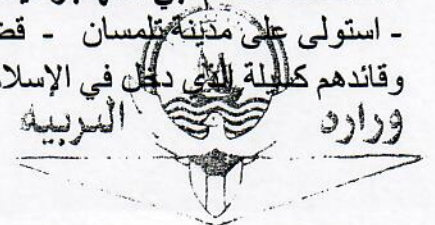 - استولى على مدينة تلمسان - قض
وقائدهم كسيلة الذي دخل في الإسلا
وزارة التربية